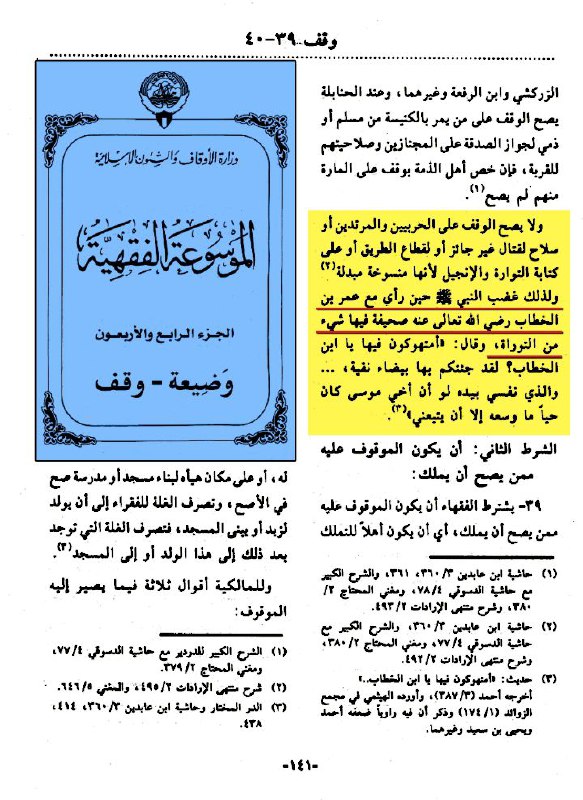 وقف ٣٩-٤٠
الزركشي وابن الرفعة وغيرهما، وعند الحنابلة
يصح الوقف على من يمر بالكنيسة من مسلم أو
ذمي لجواز الصدقة على المجتازين وصلاحيتهم
للقربة، فإن خص أهل الذمة بوقف على المارة
منهم لم يصح(١).
ولا يصح الوقف على الحربيين والمرتدين أو
سلاح لقتال غير جائز أو لقطاع الطريق أو على
كتابة التوارة والإنجيل لأنها منسوخة مبدلة(٢)
ولذلك غضب النبي ﷺ حين رأي مع عمر بن
الخطاب رضي الله تعالى عنه صحيفة فيها شيء
من التوراة، وقال: «أمتهوكون فيها يا ابن
الخطاب؟ لقد جئتكم بها بيضاء نقية، ...
والذي نفسي بيده لو أن أخي موسى كان
حياً ما وسعه إلا أن يتبعني»(٣).
الشرط الثاني: أن يكون الموقوف عليه
ممن يصح أن يملك:
٣٩- يشترط الفقهاء أن يكون الموقوف عليه
ممن يصح أن يملك، أي أن يكون أهلاً للتملك
(١) حاشية ابن عابدين ٣/٣٦٠، ٣٦١، والشرح الكبير
مع حاشية الدسوقي ٤/٧٨، ومغني المحتاج ٢/
٣٨٠، وشرح منتهى الإرادات ٢/٤٩٣.
(٢) حاشية ابن عابدين ٣/٣٦٠، والشرح الكبير مع
حاشية الدسوقي ٤/٧٧، ومغني المحتاج ٢/٣٨٠،
وشرح منتهى الإرادات ٢/٤٩٢.
(٣) حديث: «أمتهوكون فيها يا ابن الخطاب..»
أخرجه أحمد (٣/٣٨٧)، وأورده الهيثمي في مجمع
الزوائد (١/١٧٤) وذكر أن فيه راوياً ضعفه أحمد
ويحيى بن سعيد وغيرهما.
وزارة الأوقاف والشئون الإسلامية
الموسوعة الفقهية
الجزء الرابع والأربعون
وضيعة - وقف
له، أو على مكان هيأه لبناء مسجد أو مدرسة صح
في الأصح، وتصرف الغلة للفقراء إلى أن يولد
لزيد أو يبنى المسجد، فتصرف الغلة التي توجد
بعد ذلك إلى هذا الولد أو إلى المسجد(٣).
وللمالكية أقوال ثلاثة فيما يصير إليه
الموقوف:
(١) الشرح الكبير للدردير مع حاشية الدسوقي ٤/٧٧،
ومغني المحتاج ٢/٣٧٩.
(٢) شرح منتهى الإرادات ٢/٤٩٥، والمغني ٥/٦٤٦.
(٣) الدر المختار وحاشية ابن عابدين ٣/٣٦٠، ٤١٤،
٤٣٨.
-١٤١-